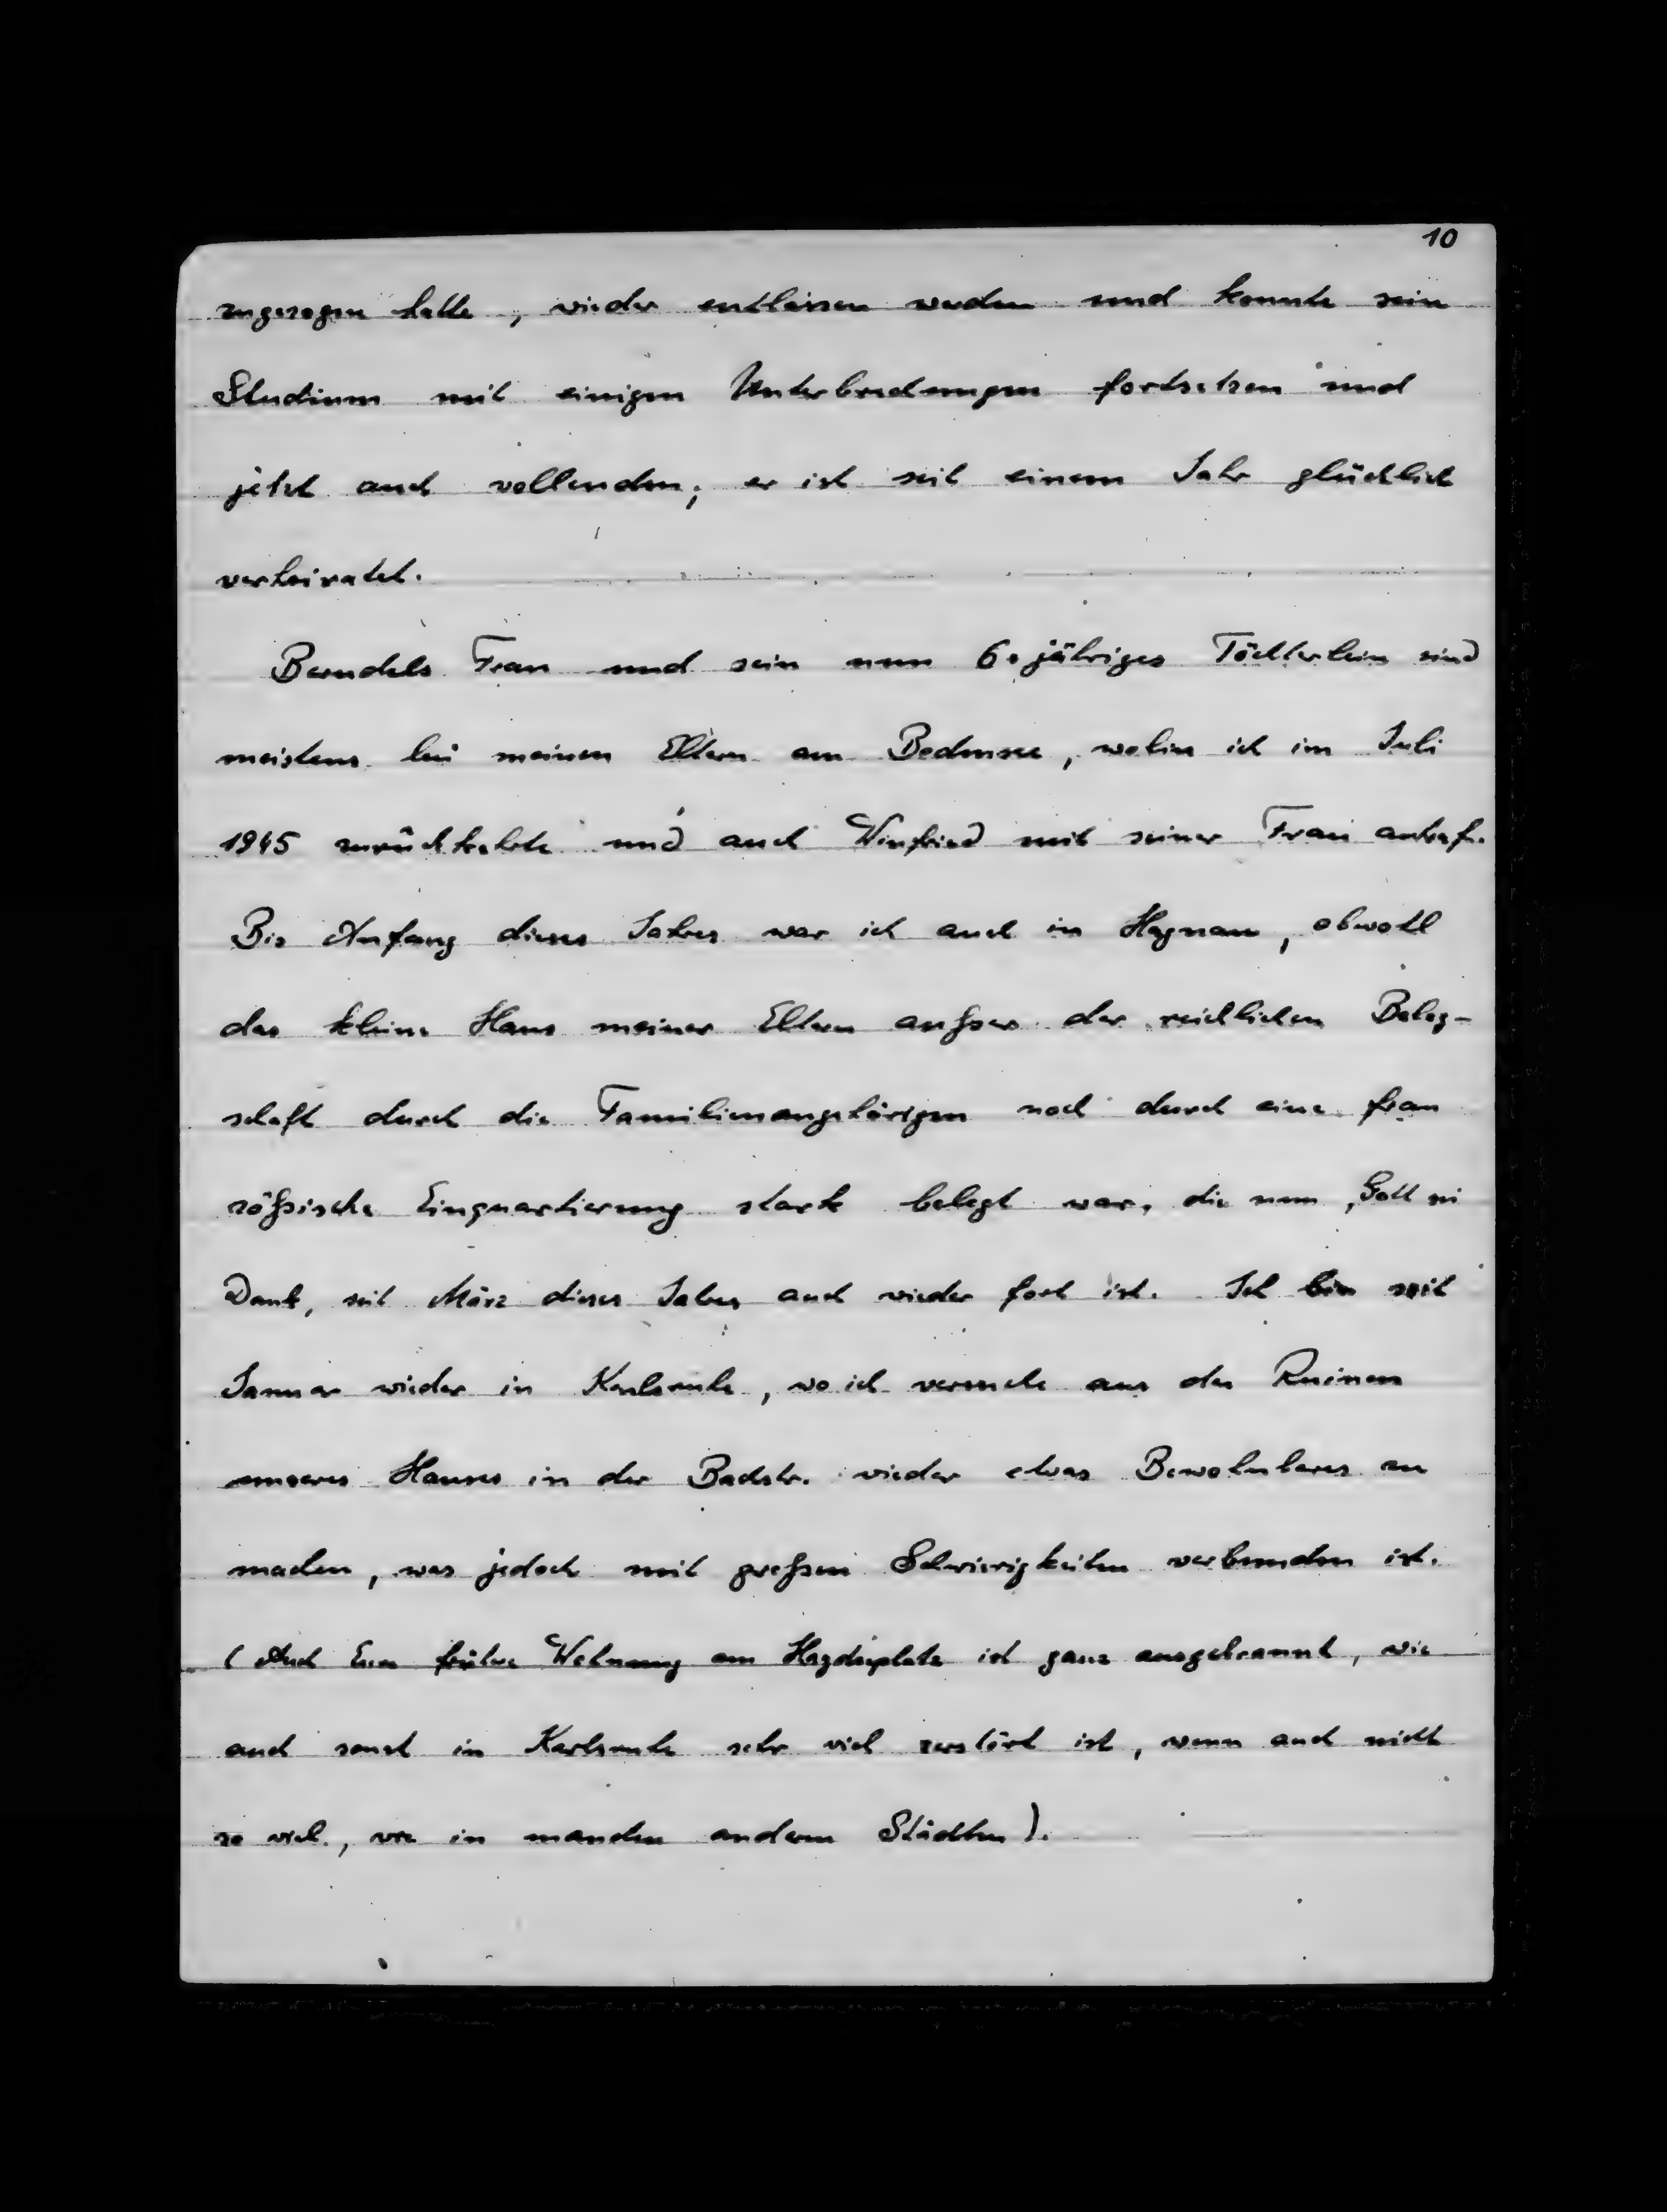 10
zugezogen hatte, wieder entlassen werden und konnte sein
Studium mit einigen Unterbrechungen fortsetzen und
jetzt auch vollenden; er ist seit einem Jahr glücklich
verheiratet.
Berndels Frau und sein nun 6-jähriges Töchterlein sind
meistens bei meinen Eltern am Bodensee, wohin ich im Juli
1945 zurückkehrte und auch Winfried mit seiner Frau antraf.
Bis Anfang dieses Jahres war ich auch in Hagnau, obwohl
das kleine Haus meiner Eltern außer der reichlichen Beleg-
schaft durch die Familienangehörigen noch durch eine fran
zößische Einquartierung stark belegt war, die nun, Gott sei
Dank, seit März dieses Jahres auch wieder fort ist. Ich bin seit
Januar wieder in Karlsruhe, wo ich versuche aus den Ruinen
unseres Hauses in der Bachstr. wieder etwas Bewohnbares zu
machen, was jedoch mit großen Schwierigkeiten verbunden ist.
(Auch Eure frühere Wohnung am Haydnplatz ist ganz ausgebrannt, wie
auch sonst in Karlsruhe sehr viel zerstört ist, wenn auch nicht
so viel, wie in manchen andern Städten).